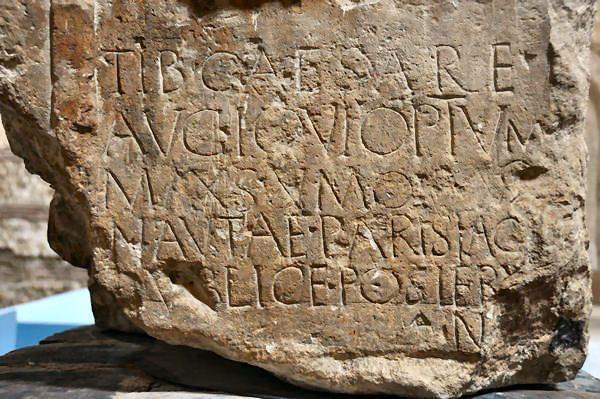 TIB·CAESARE·
AVG·IOVI·OPTVM
MAXSVMO
NAVTAE·PARISIAC
LICE·POSIER
N